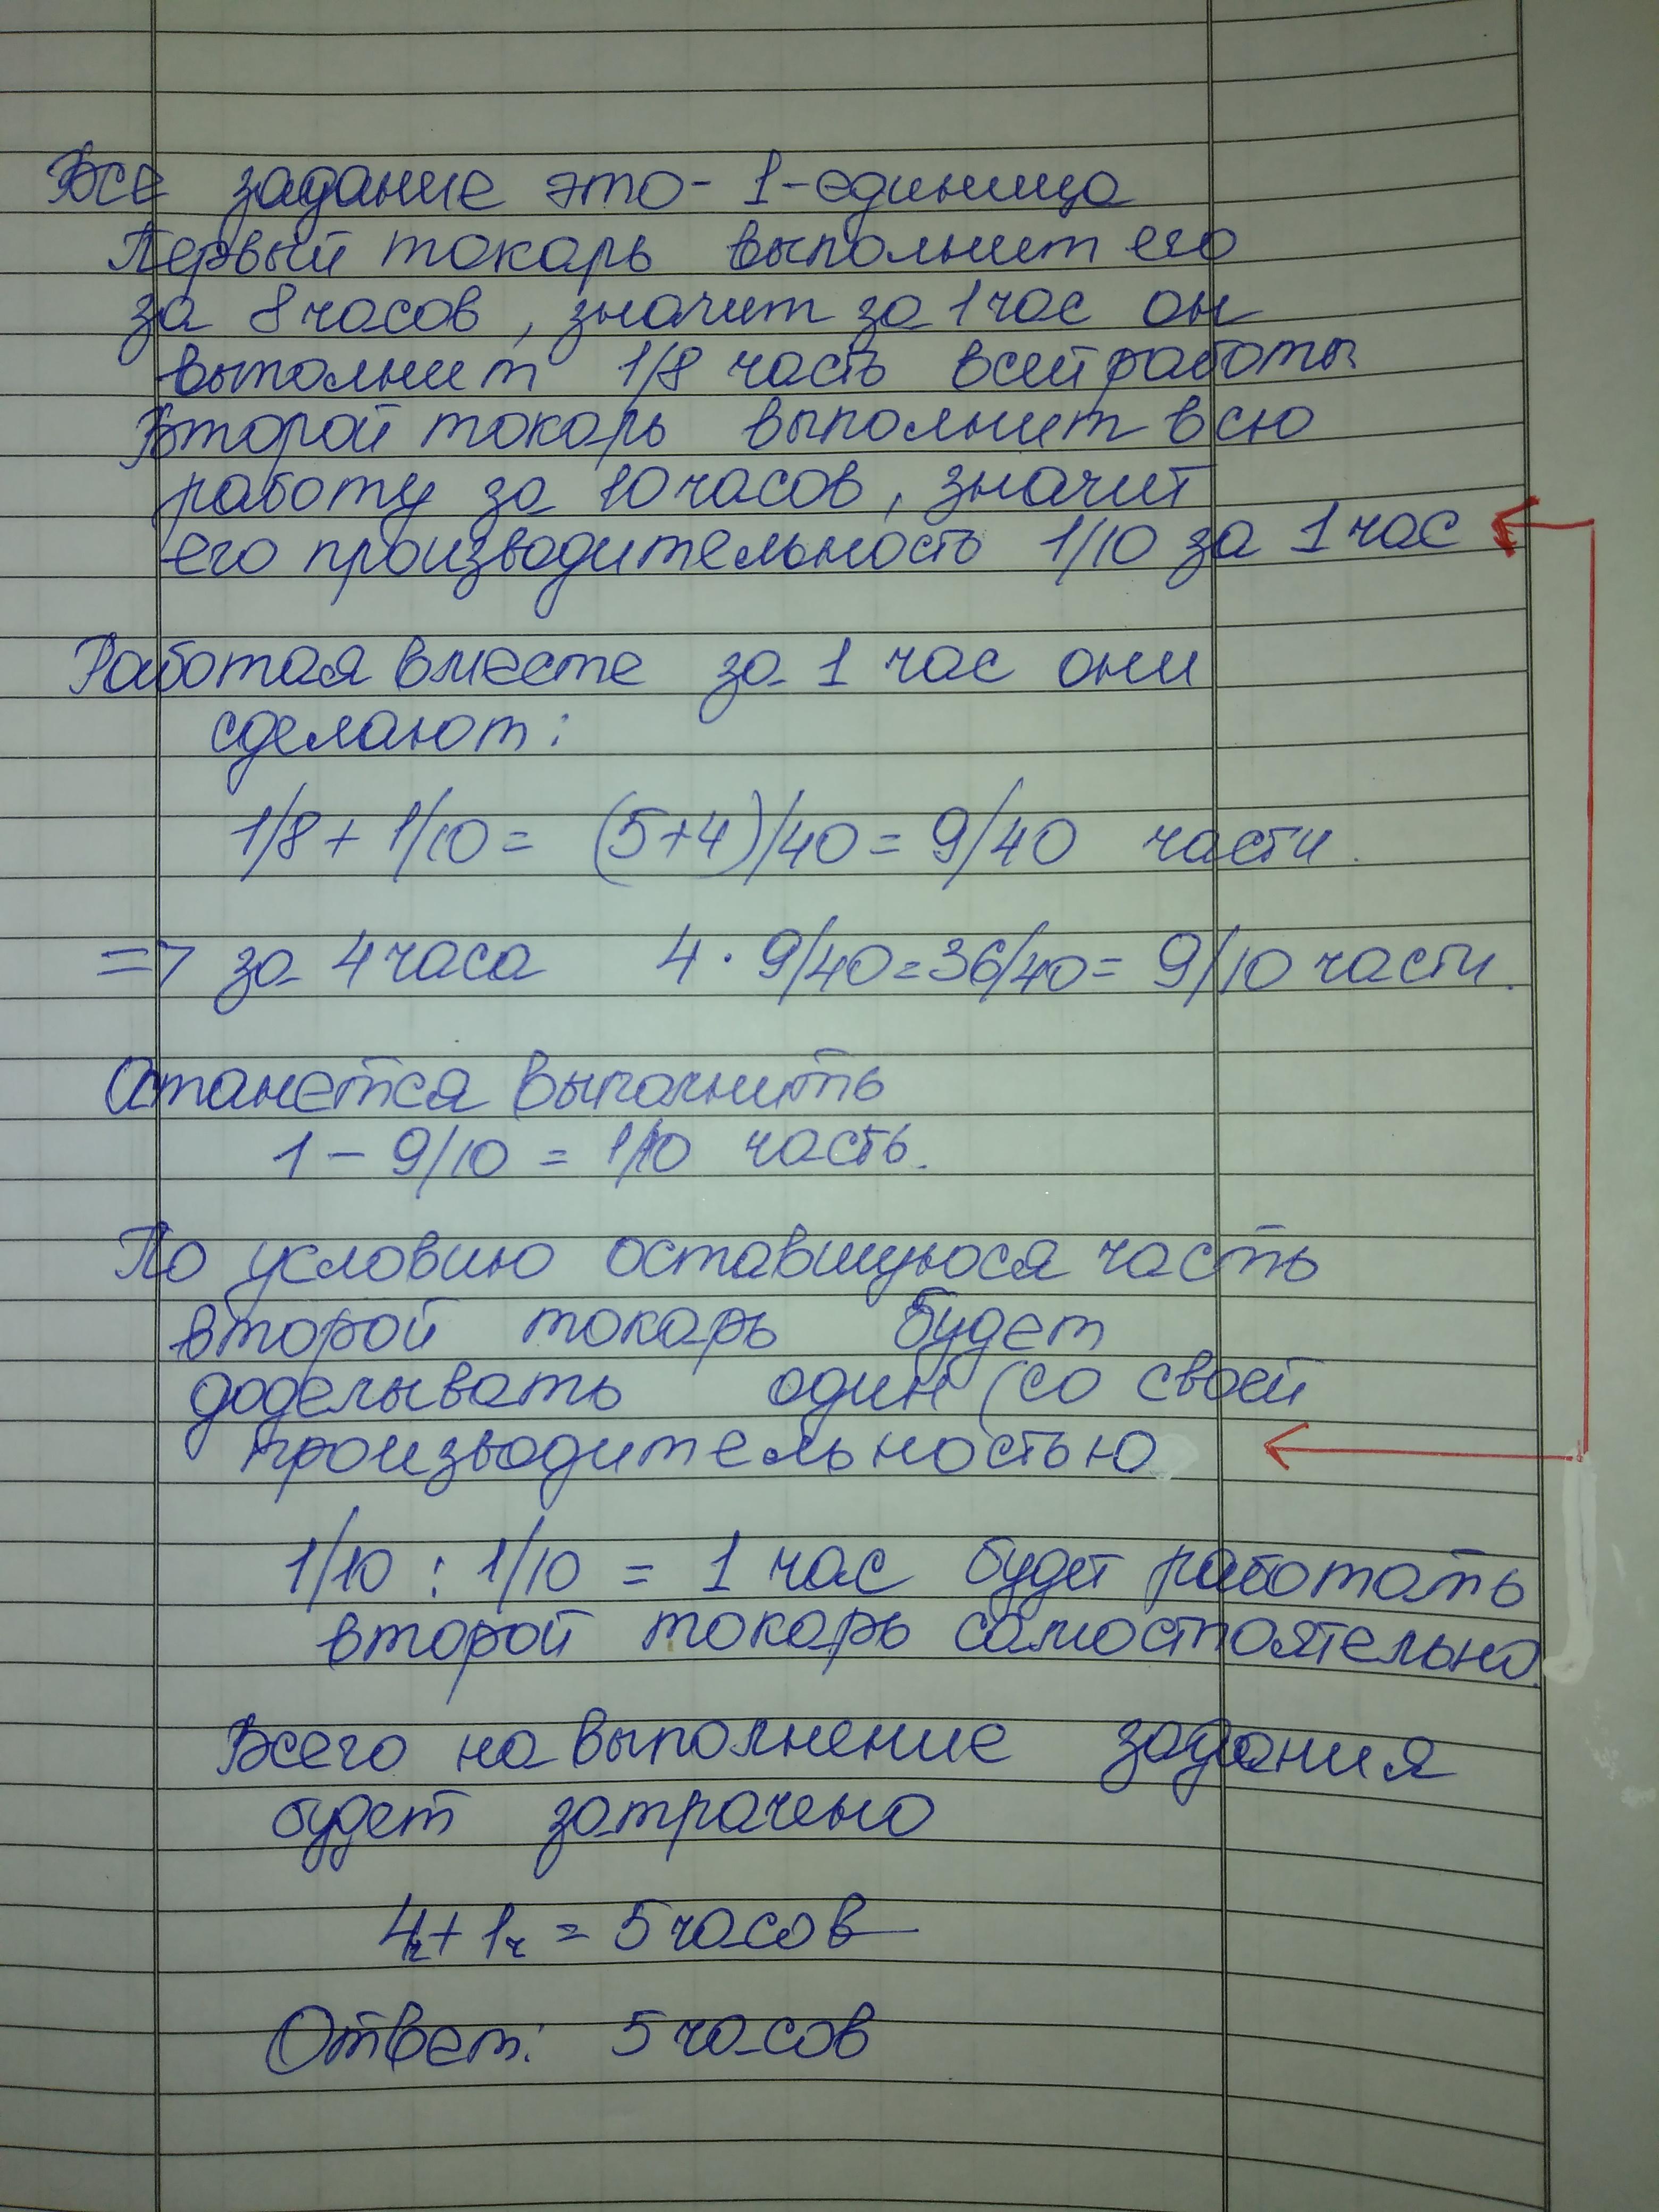 Все задание это - 1 - единица
Первый токарь выполнит его
за 8 часов, значит за 1 час он
выполнит 1/8 часть всей работы
Второй токарь выполнит всю
работу за 10 часов, значит
его производительность 1/10 за 1 час
Работая вместе за 1 час они
сделают:
1/8 + 1/10 = (5+4)/40 = 9/40 части.
=> за 4 часа 4 · 9/40 = 36/40 = 9/10 части.
Останется выполнить
1 - 9/10 = 1/10 часть.
По условию оставшуюся часть
второй токарь будет
доделывать один (со своей
производительностью
1/10 : 1/10 = 1 час будет работать
второй токарь самостоятельно.
Всего на выполнение задания
будет затрачено
4ч + 1ч = 5 часов
Ответ: 5 часов